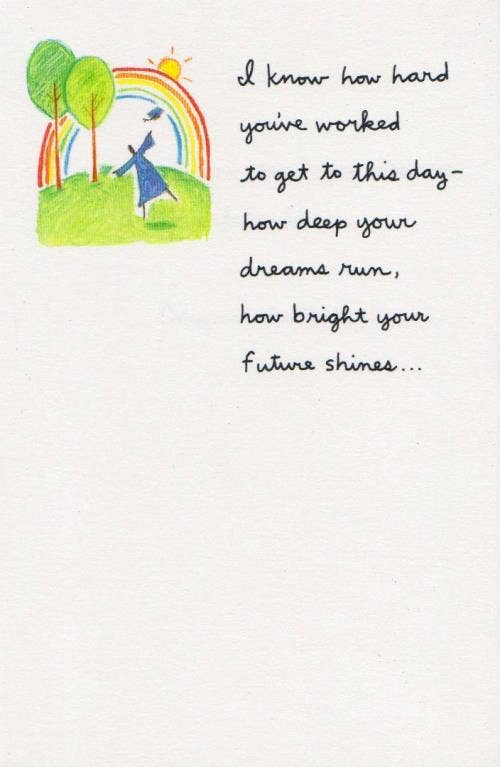 I know how hard
you've worked
to get to this day-
how deep your
dreams run,
how bright your
future shines...